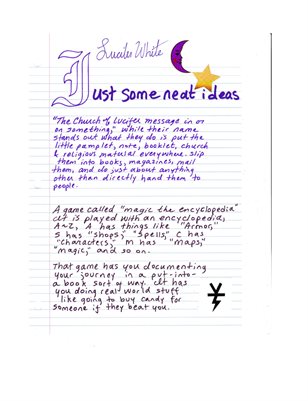 Lucifer White
Just some neat ideas
"The Church of Lucifer message in or
on something," while their name
stands out what they do is put the
little pamplet, note, booklet, church
& religious material everywhere. slip
them into books, magazines, mail
them, and do just about anything
other than directly hand them to
people.
A game called "magic the encyclopedia"
it is played with an encyclopedia,
A-Z, A has things like "Armor,"
S has "shops," "spells," C has
"characters," M has "maps,"
"magic," and so on.
That game has you documenting
your journey in a put-into-
a book sort of way. it has
you doing real world stuff
like going to buy candy for
someone if they beat you.